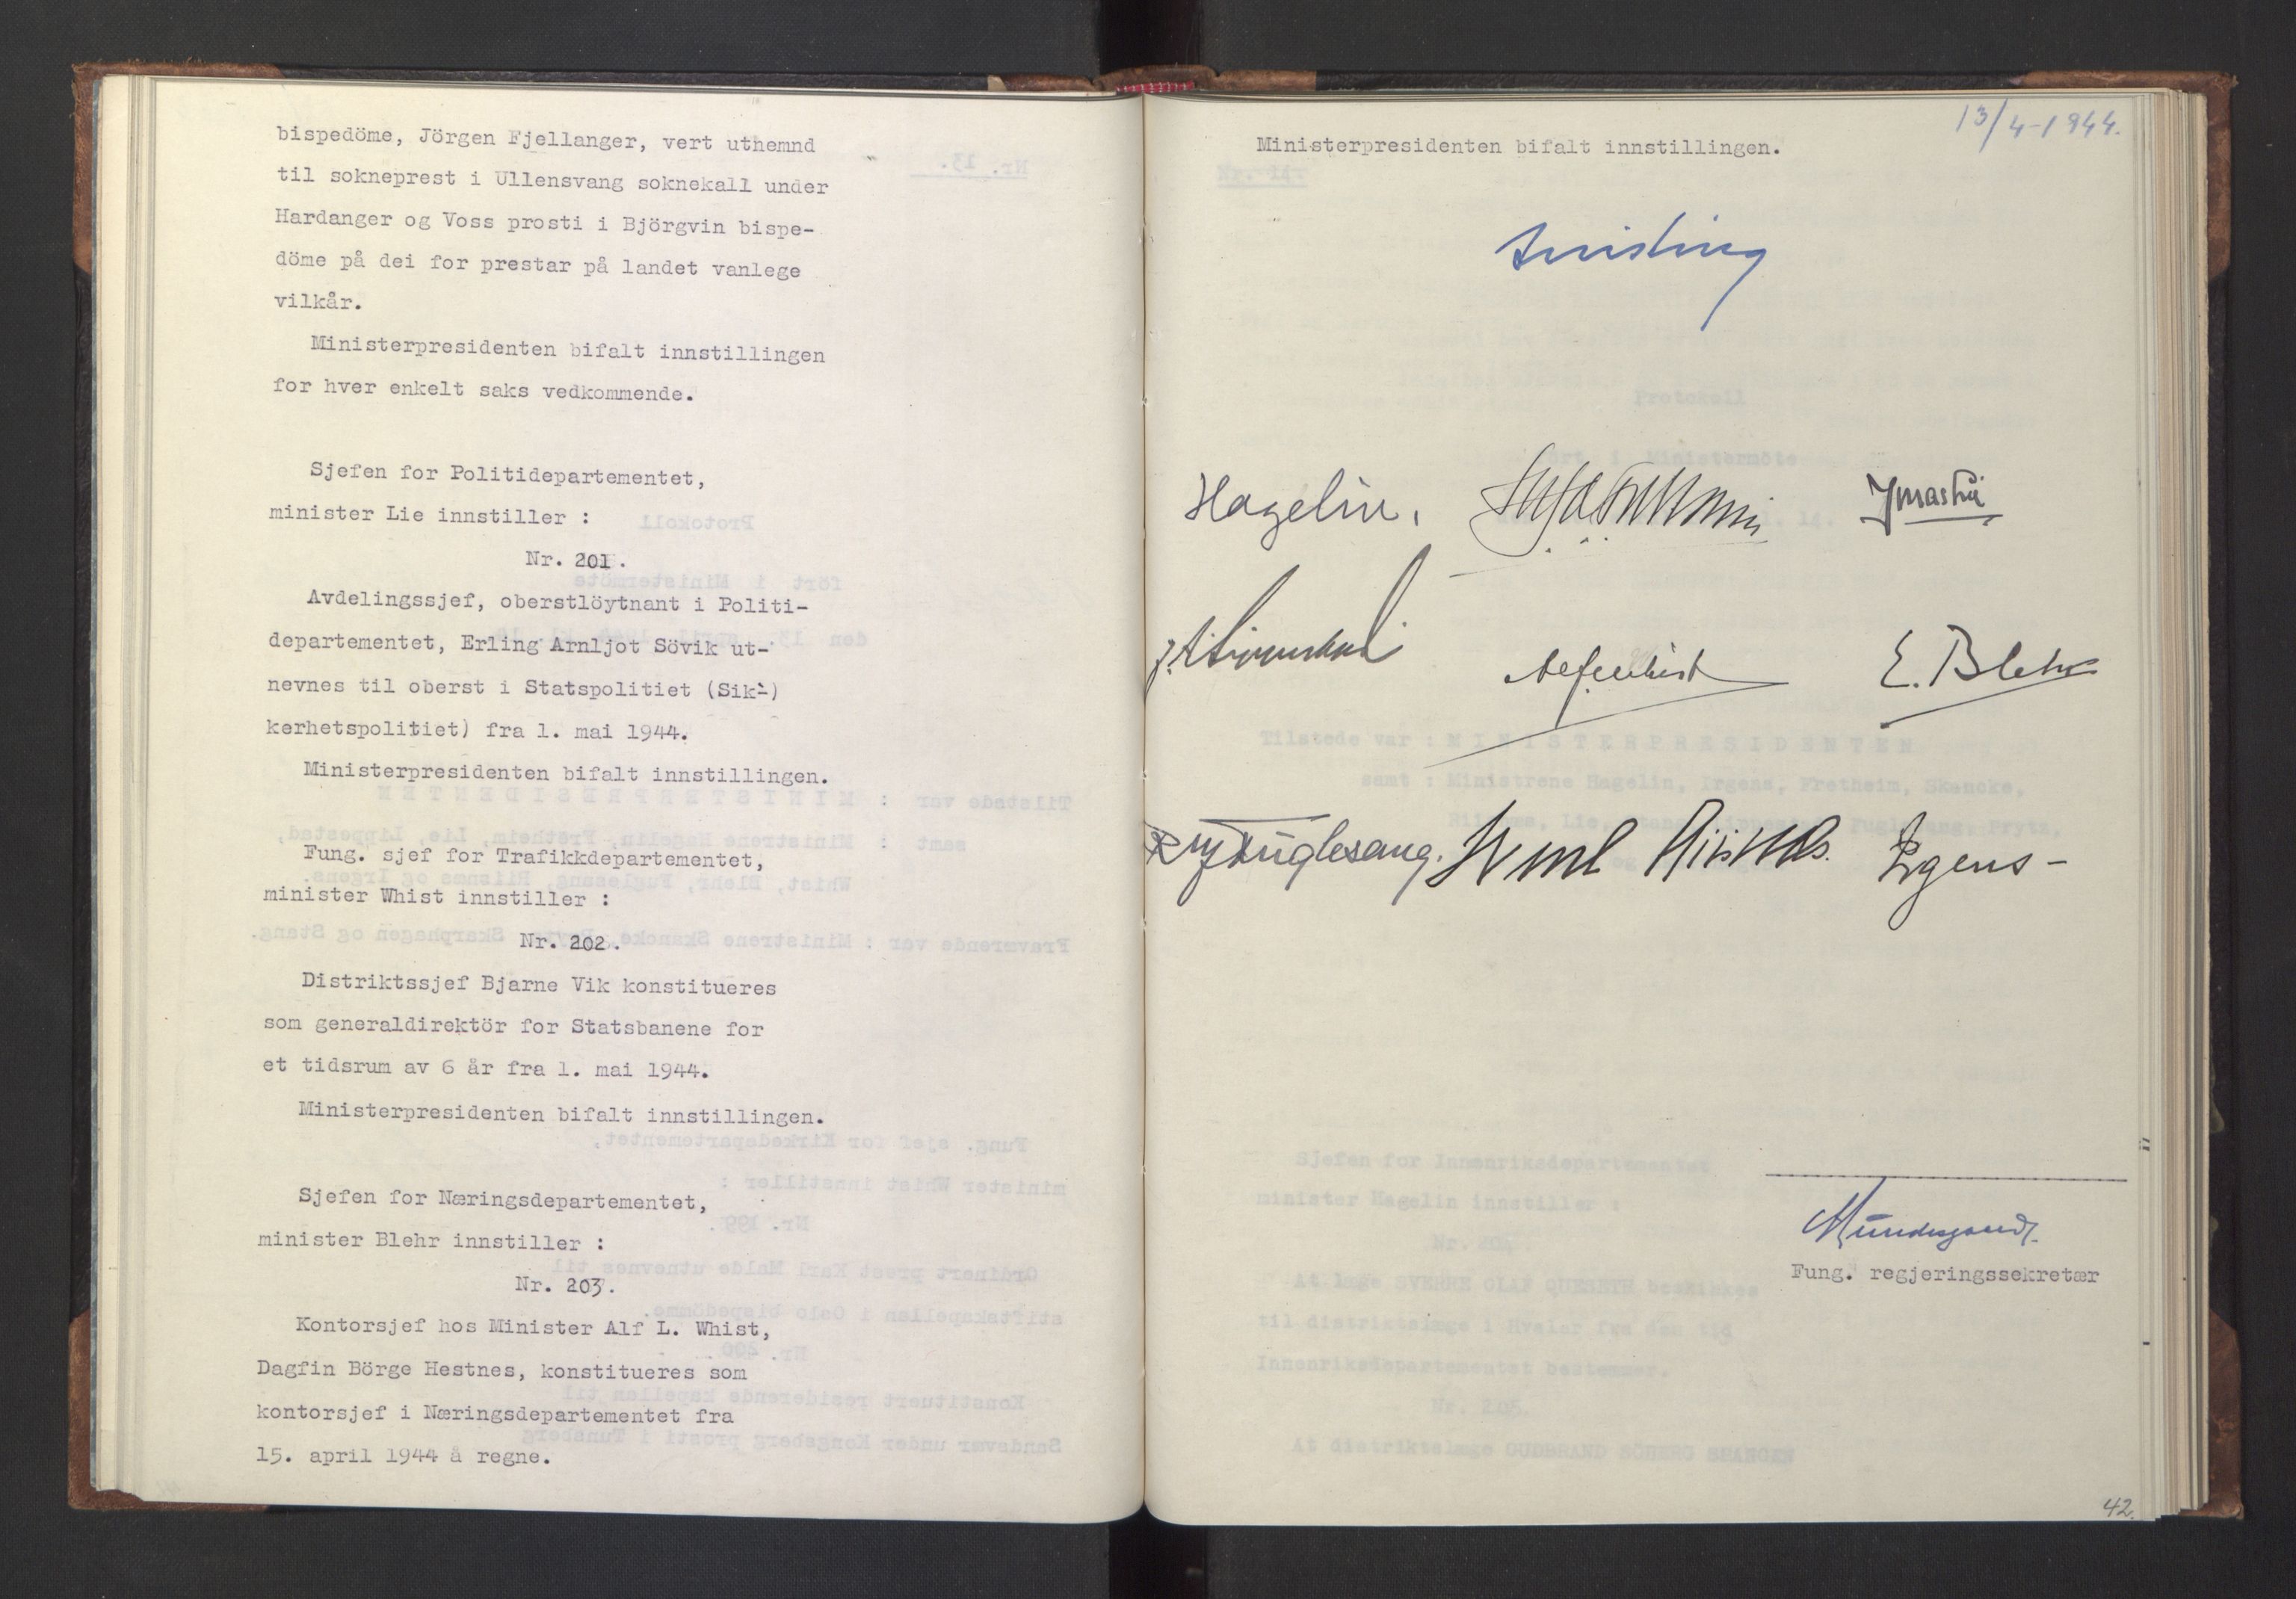 bispedöme, Jörgen Fjellanger, vert uthemnd
til sokneprest i Ullensvang soknekall under
Hardanger og Voss prosti i Björgvin bispe-
döme på dei for prestar på landet vanlege
vilkår.
Ministerpresidenten bifalt innstillingen
for hver enkelt saks vedkommende.
Sjefen for Politidepartementet,
minister Lie innstiller :
Nr. 201.
Avdelingssjef, oberstlöytnant i Politi-
departementet, Erling Arnljot Sövik ut-
nevnes til oberst i Statspolitiet (Sik-)
kerhetspolitiet) fra 1. mai 1944.
Ministerpresidenten bifalt innstillingen.
Fung. sjef for Trafikkdepartementet,
minister Whist innstiller :
Nr. 202.
Distriktssjef Bjarne Vik konstitueres
som generaldirektör for Statsbanene for
et tidsrum av 6 år fra 1. mai 1944.
Ministerpresidenten bifalt innstillingen.
Sjefen for Næringsdepartementet,
minister Blehr innstiller :
Nr. 203.
Kontorsjef hos Minister Alf L. Whist,
Dagfin Börge Hestnes, konstitueres som
kontorsjef i Næringsdepartementet fra
15. april 1944 å regne.
13/4-1944.
Ministerpresidenten bifalt innstillingen.
Quisling
Hagelin.
E. Blehr
Fuglesang. Riisnæs. Irgens-
Fung. regjeringssekretær
42.